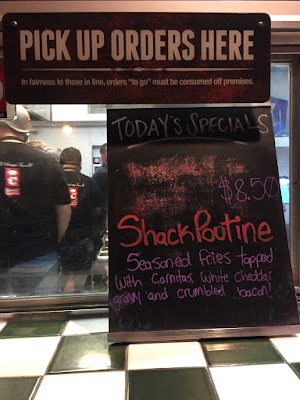 PICK UP ORDERS HERE
In fairness to those in line, orders "to go" must be consumed off premises.
TODAY'S SPECIALS
$8.50
Shack Poutine
Seasoned fries topped
with Carnitas, White Cheddar
gravy and crumbled bacon!